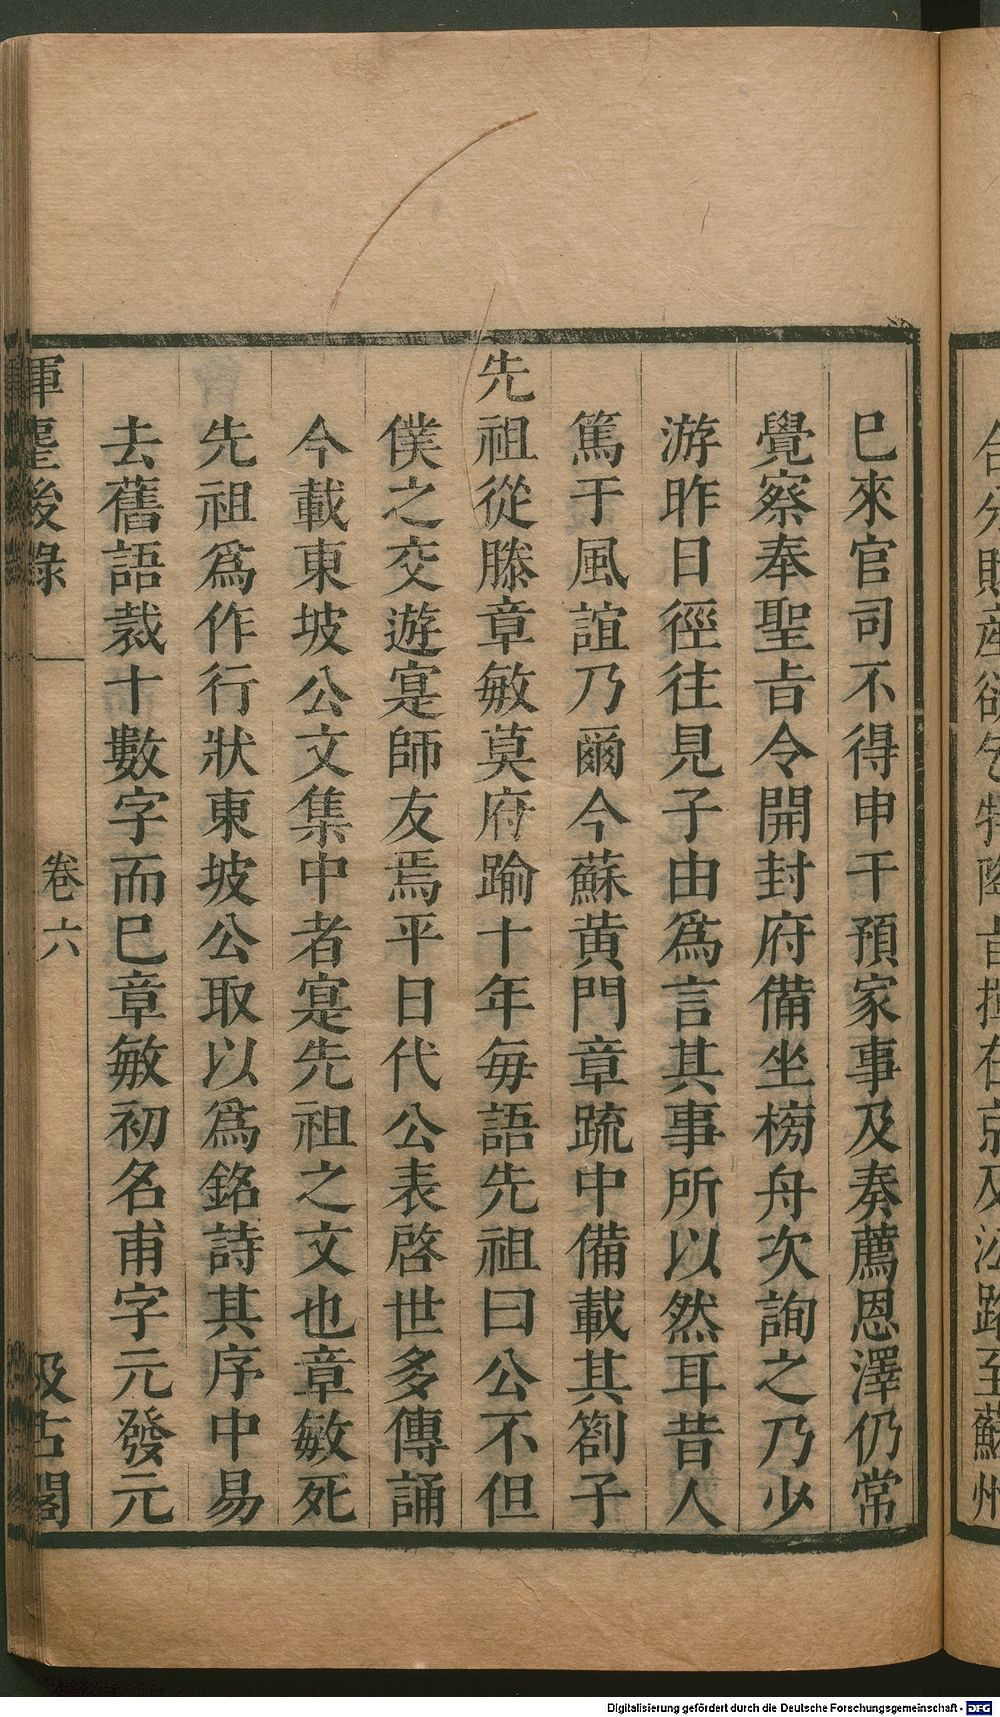 巳來官司不得申干預家事及奏薦恩澤仍常
覺察奉聖旨令開封府備坐榜舟次詢之乃少
游昨日徑往見子由爲言其事所以然耳昔人
篤于風誼乃爾今蘇黃門章疏中備載其劄子
先祖從滕章敏莫府踰十年每語先祖曰公不但
僕之交遊寔師友焉平日代公表啓世多傳誦
今載東坡公文集中者寔先祖之文也章敏死
先祖爲作行狀東坡公取以爲銘詩其序中易
去舊語裁十數字而巳章敏初名甫字元發元
揮麈後錄 卷六 汲古閣
Digitalisierung gefördert durch die Deutsche Forschungsgemeinschaft - DFG